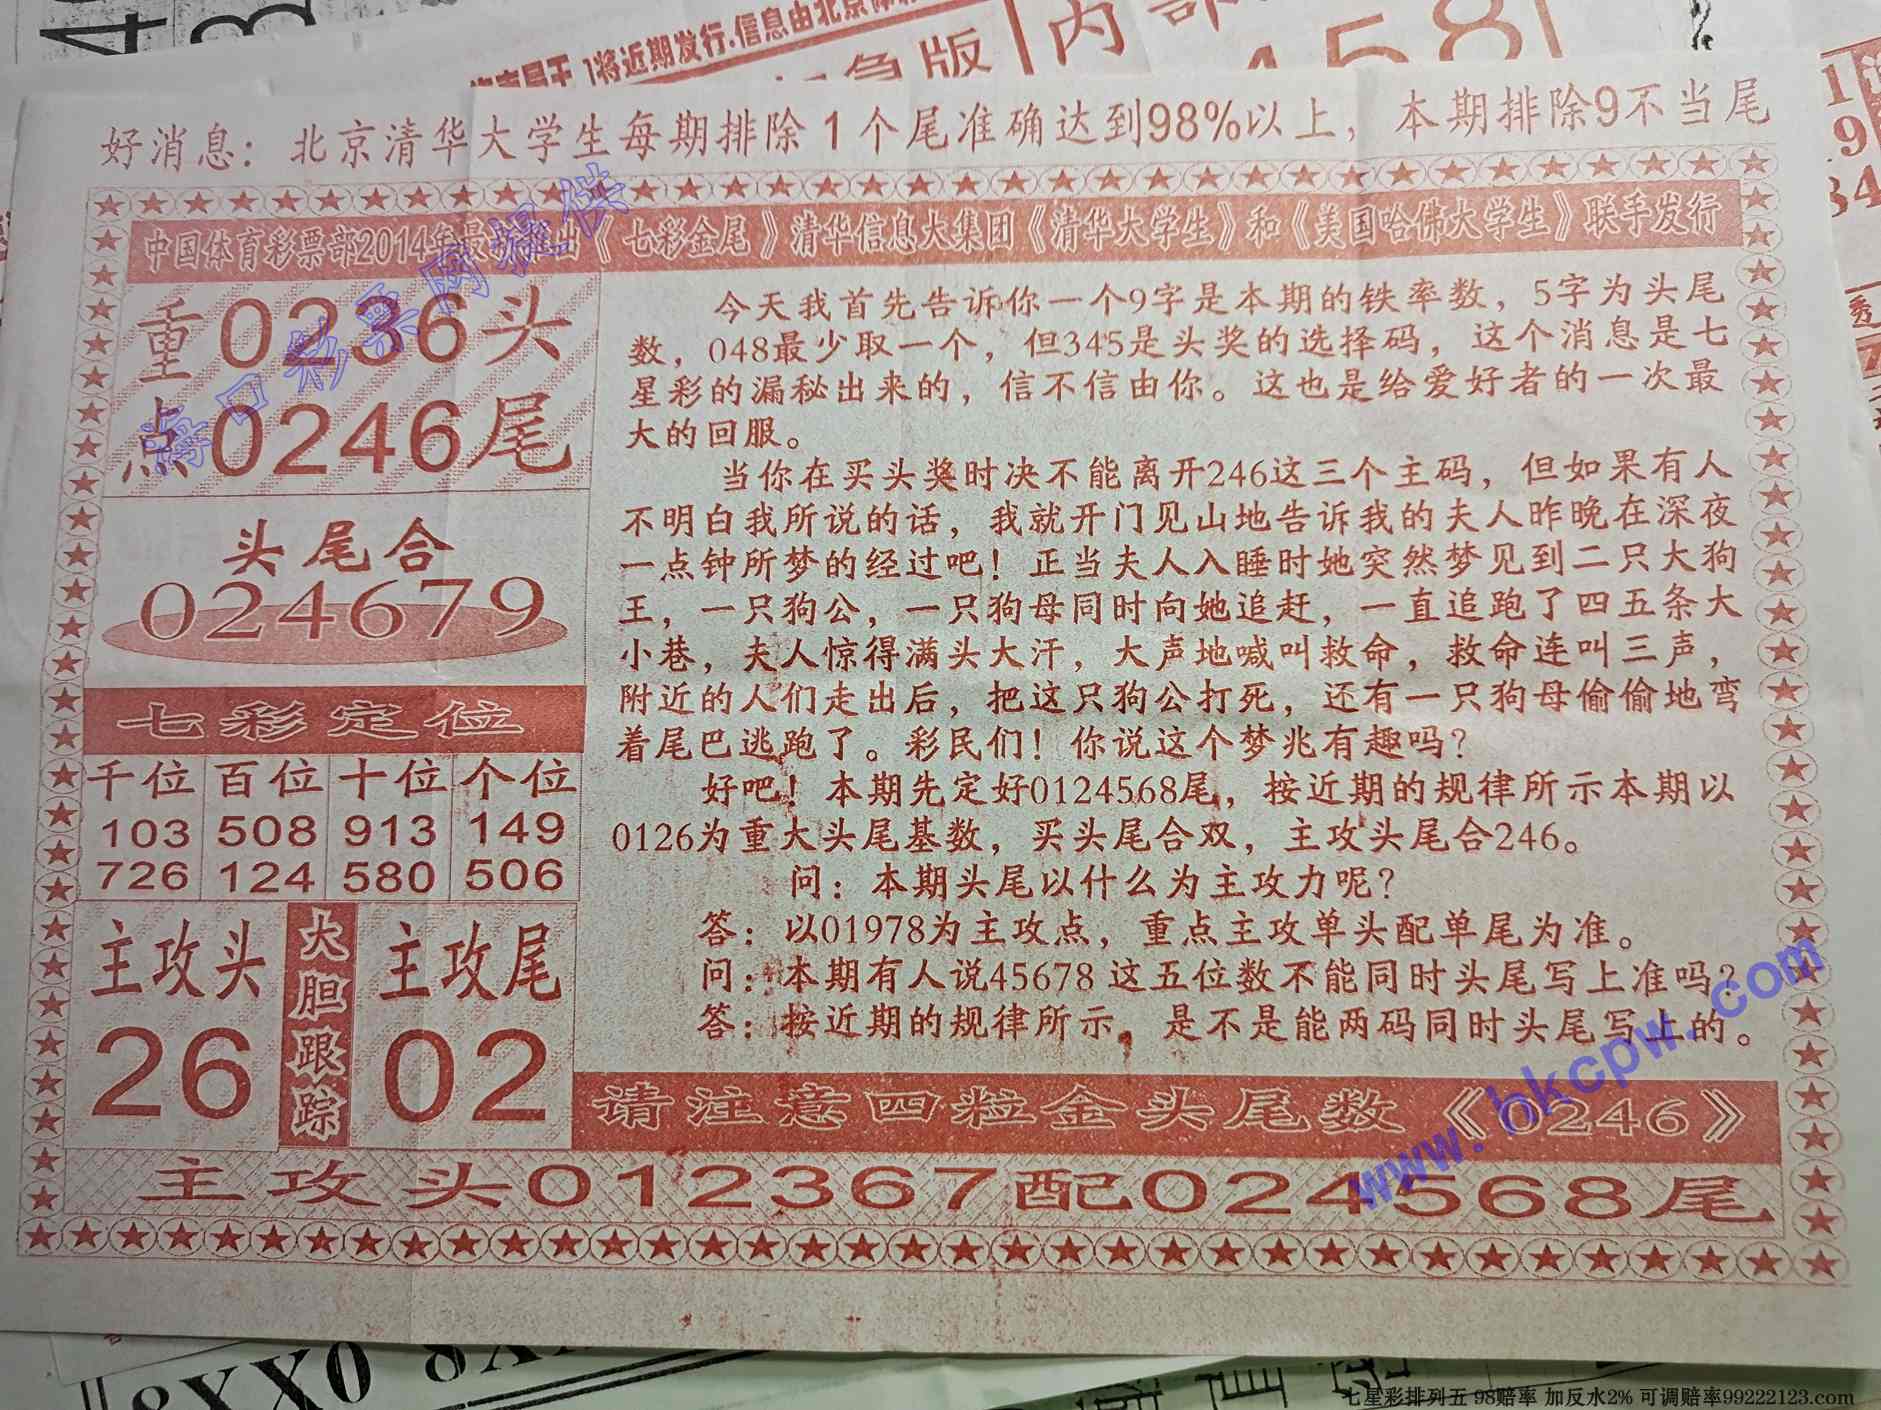 1将近期发行.信息由北京
急版
内部
458
好消息：北京清华大学生每期排除1个尾准确达到98%以上，本期排除9不当尾
中国体育彩票部2014年最新推出《七彩金尾》清华信息大集团《清华大学生》和《美国哈佛大学生》联手发行
重0236头
点0246尾
头尾合
024679
七彩定位
千位 百位 十位 个位
103 508 913 149
726 124 580 506
主攻头
26
大胆跟踪
主攻尾
02
今天我首先告诉你一个9字是本期的铁率数，5字为头尾
数，048最少取一个，但345是头奖的选择码，这个消息是七
星彩的漏秘出来的，信不信由你。这也是给爱好者的一次最
大的回服。
当你在买头奖时决不能离开246这三个主码，但如果有人
不明白我所说的话，我就开门见山地告诉我的夫人昨晚在深夜
一点钟所梦的经过吧！正当夫人入睡时她突然梦见到二只大狗
王，一只狗公，一只狗母同时向她追赶，一直追跑了四五条大
小巷，夫人惊得满头大汗，大声地喊叫救命，救命连叫三声，
附近的人们走出后，把这只狗公打死，还有一只狗母偷偷地弯
着尾巴逃跑了。彩民们！你说这个梦兆有趣吗？
好吧！本期先定好0124568尾，按近期的规律所示本期以
0126为重大头尾基数，买头尾合双，主攻头尾合246。
问：本期头尾以什么为主攻力呢？
答：以01978为主攻点，重点主攻单头配单尾为准。
问：本期有人说45678 这五位数不能同时头尾写上准吗？
答：按近期的规律所示，是不是能两码同时头尾写上的。
请注意四粒金头尾数《0246》
主攻头012367配024568尾
海口彩票网提供
www.hkcpw.com
8XX0
七星彩排列五 98赔率 加反水2% 可调赔率99222123.com